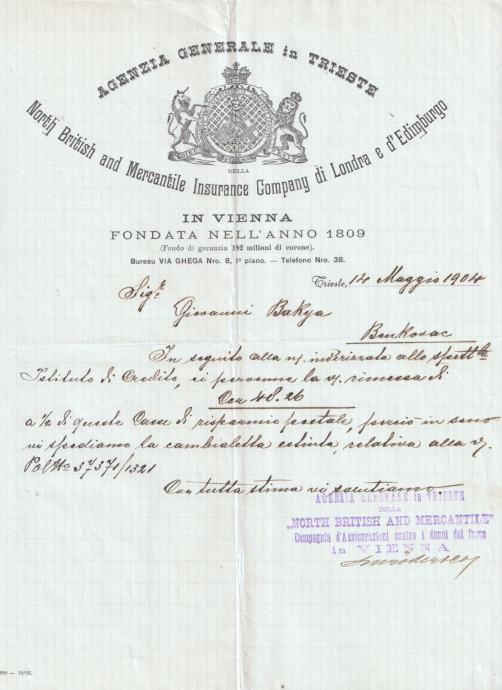 AGENZIA GENERALE in TRIESTE
DELLA
North British and Mercantile Insurance Company di Londra e d'Edimburgo
IN VIENNA
FONDATA NELL'ANNO 1809
(Fondo di garanzia 182 milioni di corone).
Bureau VIA GHEGA Nro. 8, Iº piano. — Telefono Nro. 38.
Trieste, 14 Maggio 1904
Sigr.
Giovanni Bakya
Benkovac
In seguito alla n/. indirizzata allo spettle
Istituto di Credito, ci pervenne la v/. rimessa di
Cor 48.26
a ½ di queste Casse di risparmio postale, perciò in seno
vi spediamo la cambialetta estinta, relativa alla v/.
Pol No 37371/1321
Con tutta stima vi salutiamo
AGENZIA GENERALE in TRIESTE
DELLA
„NORTH BRITISH AND MERCANTILE"
Compagnia d'Assicurazioni contro i danni del fuoco
in VIENNA